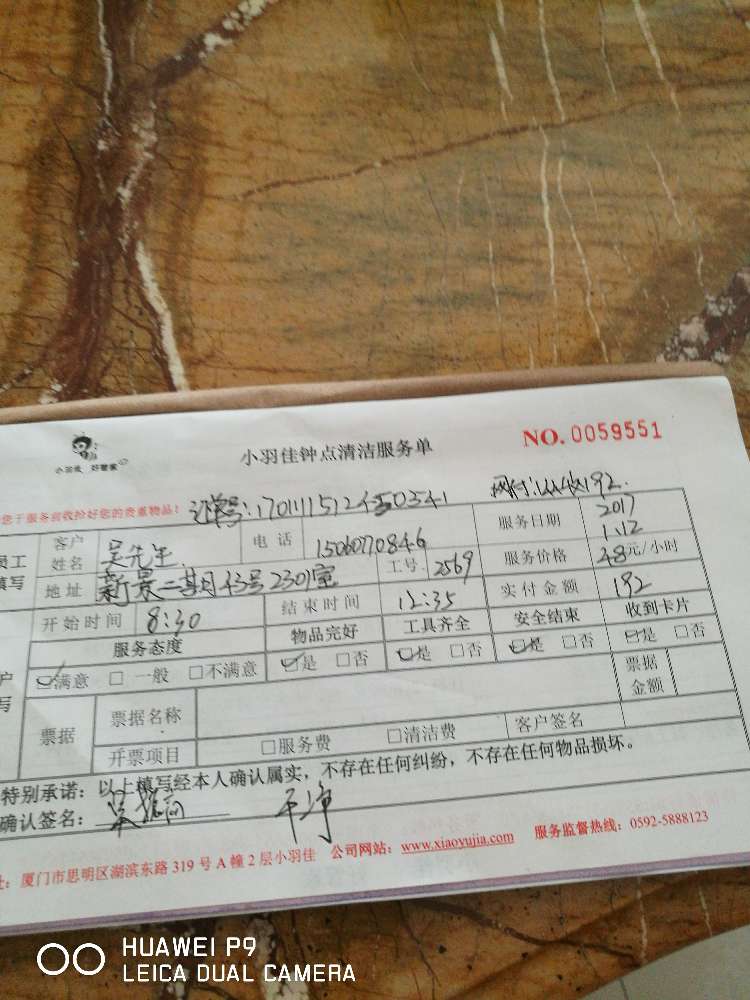 小羽佳 好管家
小羽佳钟点清洁服务单
NO. 0059551
您于服务前收拾好您的贵重物品!
192.
员工
填写
客户
姓名
吴先生
电 话
15060770846
服务日期
2017
1.12
地址
新景二期43号2301室
工号.
2569
服务价格
48元/小时
开始时间
8:30
结束时间
12:35
实付金额
192
服务态度
物品完好
工具齐全
安全结束
收到卡片
满意 □ 一般 □不满意
是 □否
是 □否
是 □否
是 □否
户
写
票据
票据名称
票据
金额
开票项目
□服务费 □清洁费
客户签名
特别承诺:以上填写经本人确认属实,不存在任何纠纷,不存在任何物品损坏。
确认签名:
干净
址:厦门市思明区湖滨东路 319 号 A 幢 2 层小羽佳 公司网站:www.xiaoyujia.com 服务监督热线:0592-5888123
HUAWEI P9
LEICA DUAL CAMERA